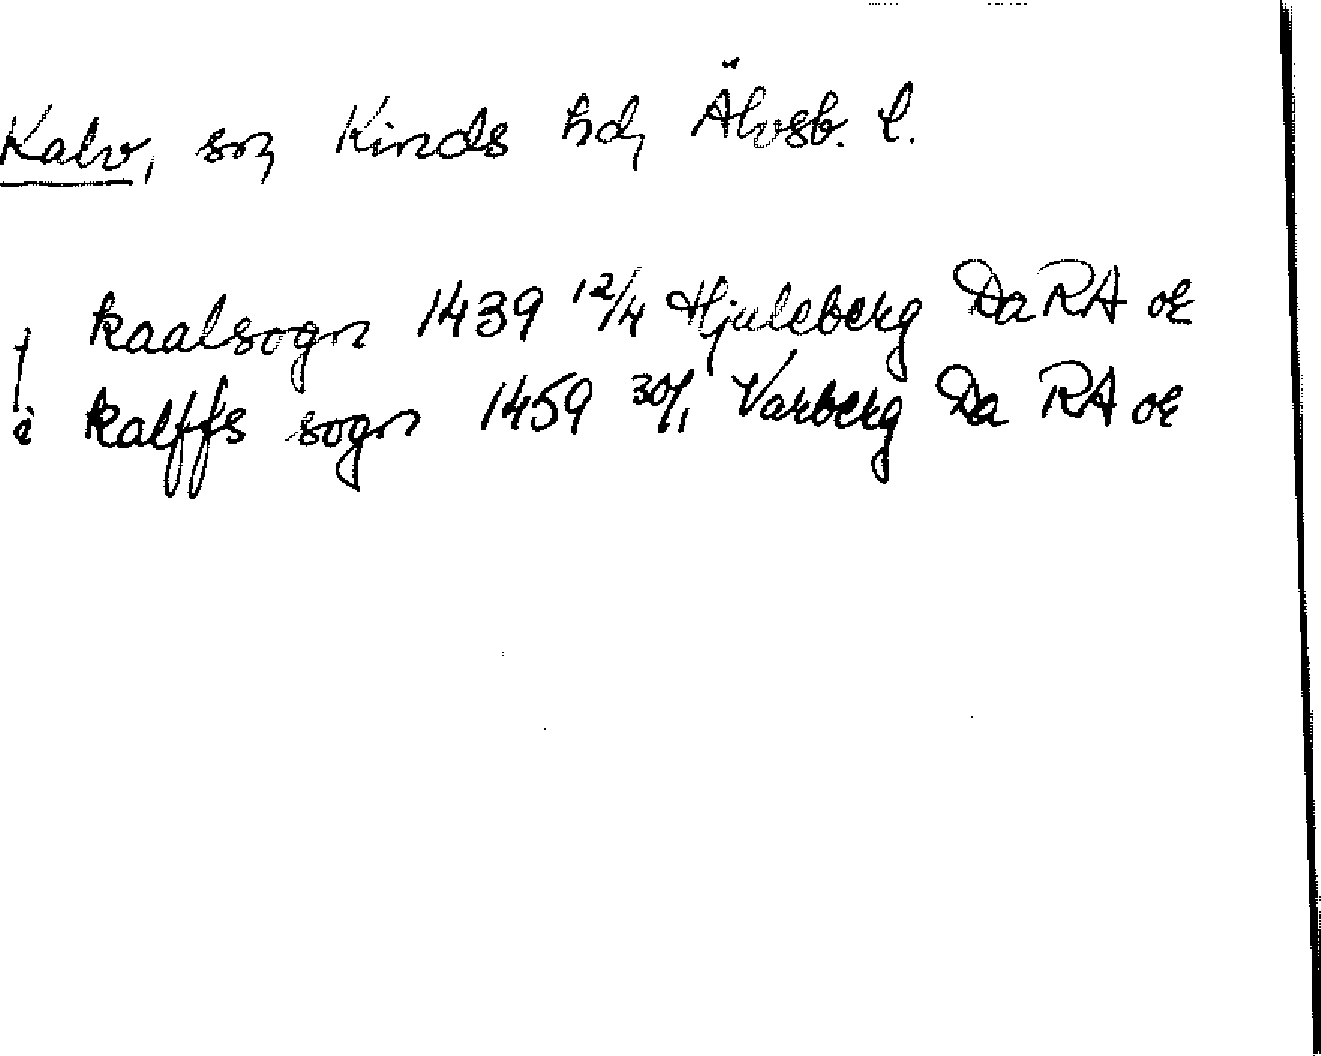 Kalv, sn Kinds hd Älvsb. l.
j kaalsogn 1439 12/4 Hjuleberg Da RA or
i kalffs sogn 1459 30/1 Varberg Da RA or